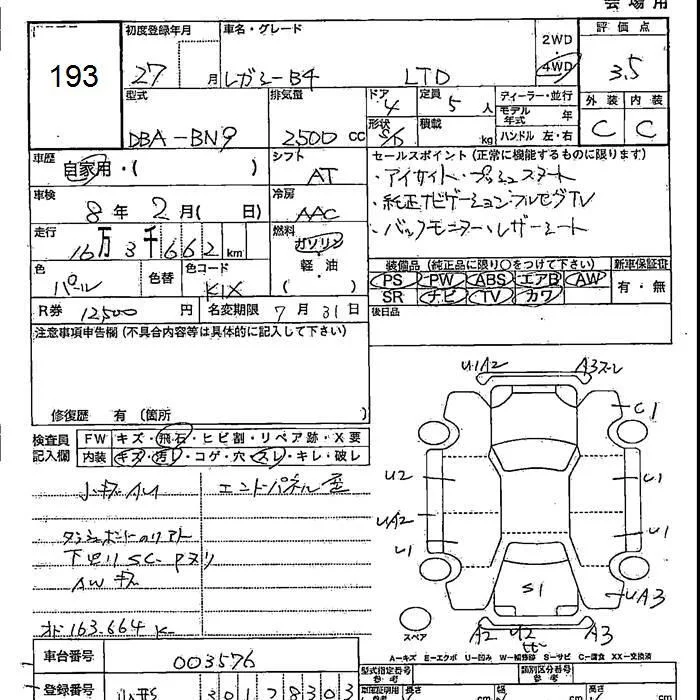 会場用
193
初度登録年月
27 月
車名・グレード
レガシーB4 LTD
2WD
・
4WD
評価点
3.5
型式
DBA-BN9
排気量
2500 cc
ドア
4
定員
5 人
形状
S/D
積載
kg
ディーラー・並行
モデル年式 年
ハンドル 左・右
外装 内装
C C
車歴
自家用・( )
シフト
AT
セールスポイント (正常に機能するものに限ります)
・アイサイト・プッシュスタート
・純正ナビゲーション・フルセグTV
・バックモニター・レザーシート
車検
8年 2月( 日)
冷房
AAC
走行
16万3千662km
燃料
ガソリン
軽・油
・
( )
色
パール
色替
色コード
K1X
装備品 (純正品に限り○をつけて下さい)
PS PW ABS エアB AW
SR ナビ TV カワ
新車保証書
有・無
R券 12,500 円
名変期限 7月31日
後日品
注意事項申告欄 (不具合内容等は具体的に記入して下さい)
修復歴 有 (箇所 )
検査員
記入欄
FW キズ・飛石・ヒビ割・リペア跡・X要
内装 キズ・汚レ・コゲ・穴・スレ・キレ・破レ
小キズ AU
エンドパネル歪
ダッシュボードのリアト
下回りSC・Pヌリ
AWキズ
オド163.664K
U1A2
A3スレ
C1
U2
U1
UA2
U1
U1
S1
UA3
スペア
A2
U2
A3
A-キズ E-エクボ U-凹み W-補修跡 S-サビ C-腐食 XX-交換済
車台番号
003576
型式指定番号
参考
類別区分番号
参考
登録番号
山形 301 す 8303
長さ
cm
cm
cm